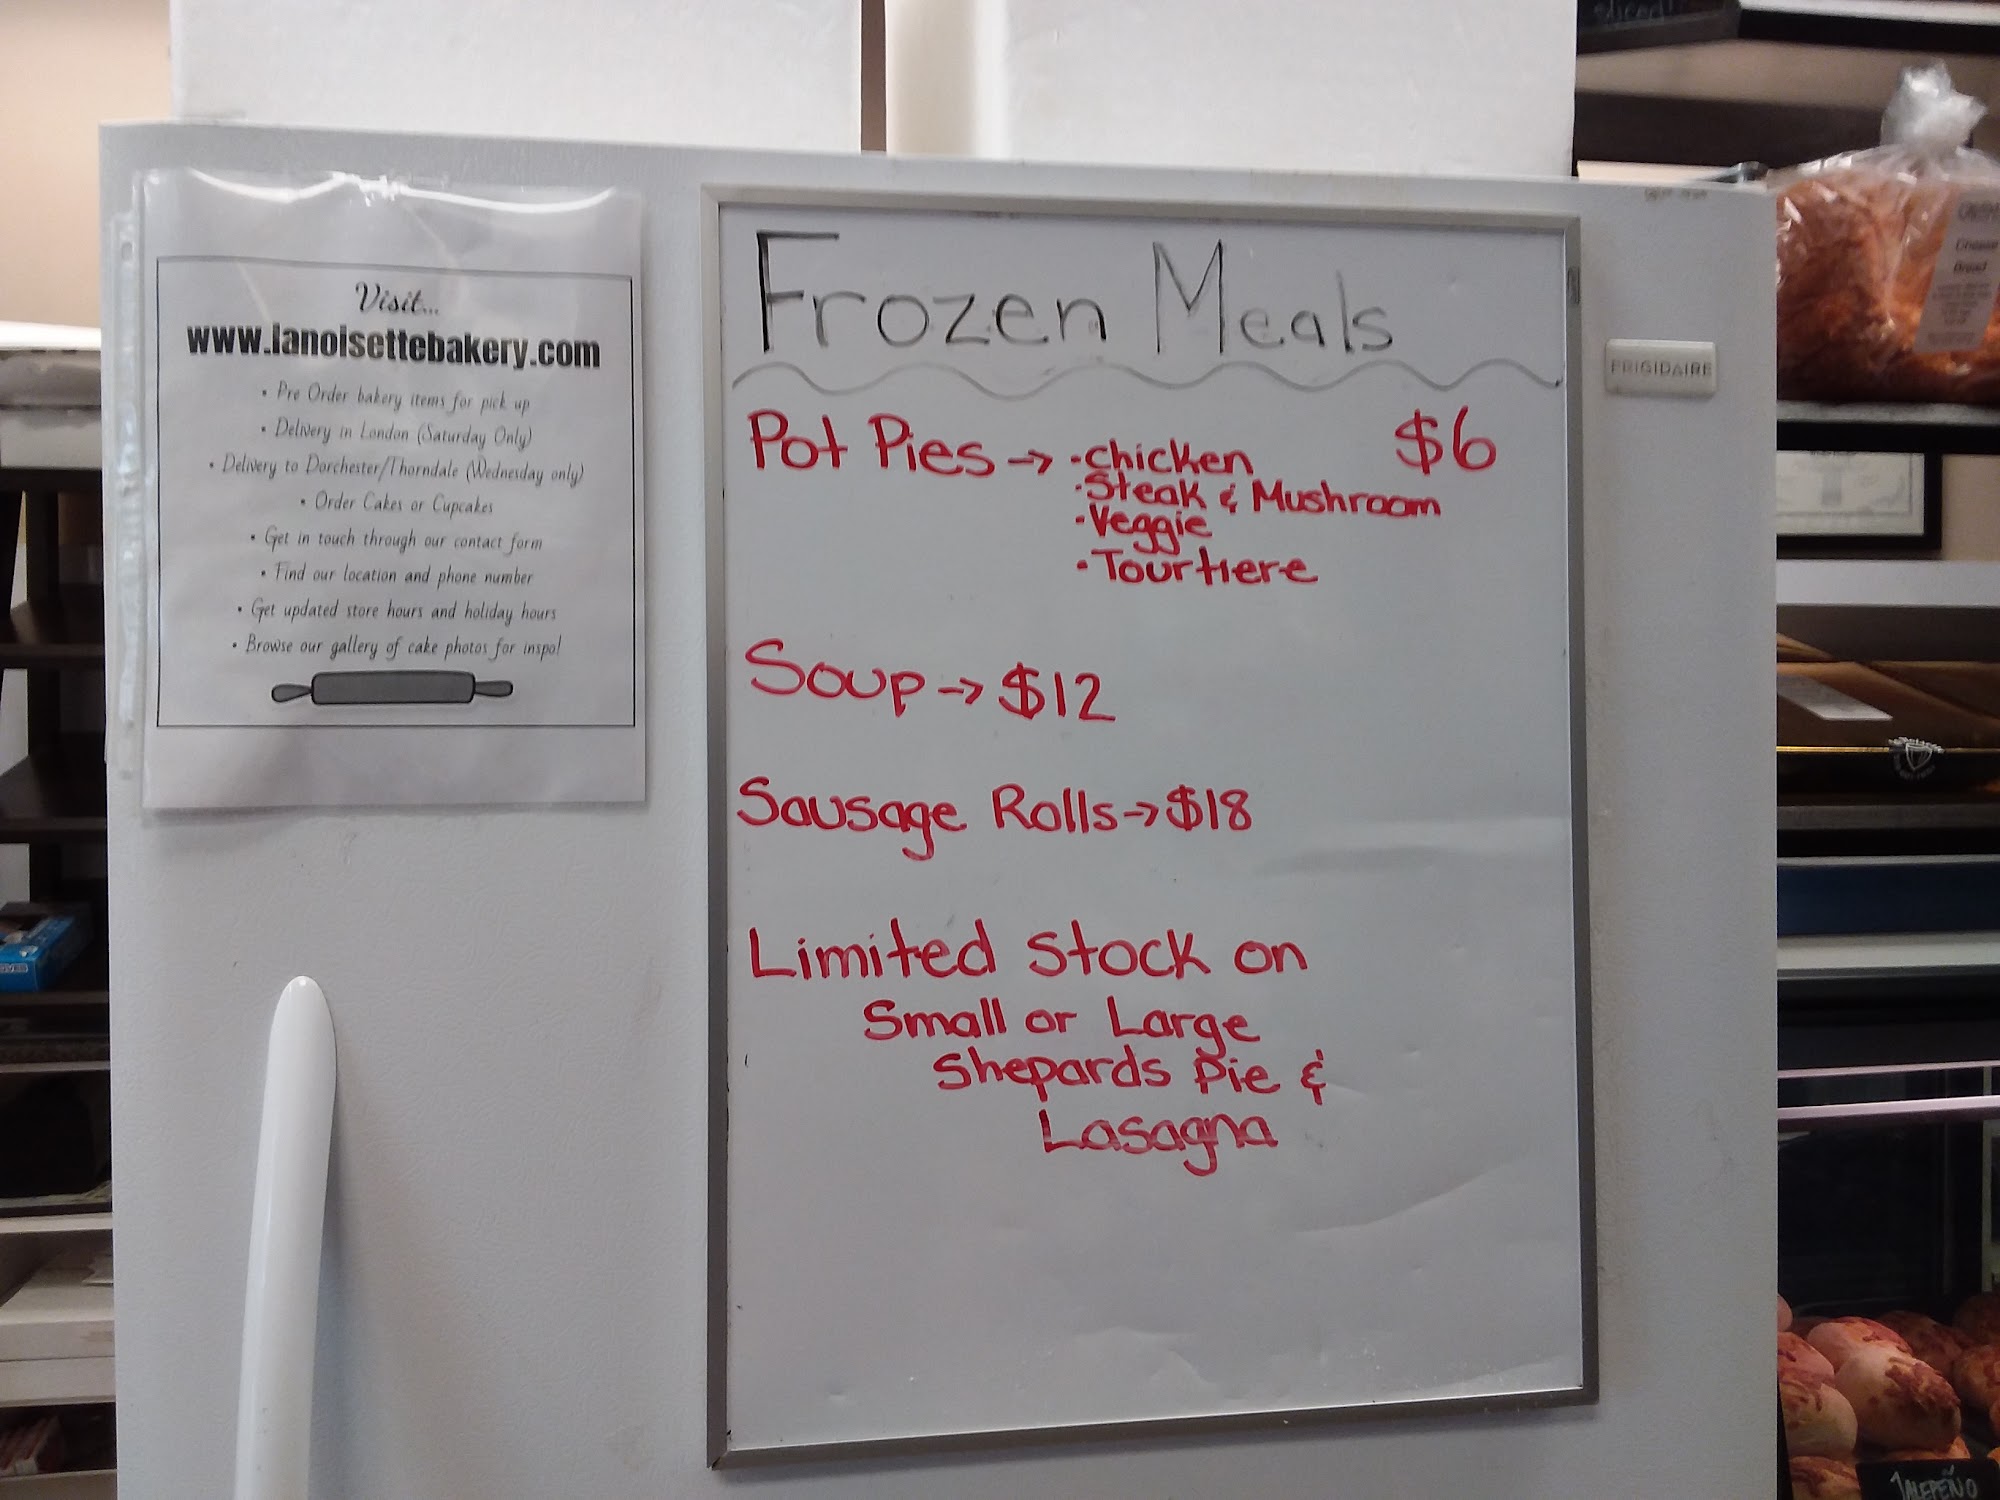 Visit...
www.lanoisettebakery.com
• Pre Order bakery items for pick up
• Delivery in London (Saturday Only)
• Delivery to Dorchester/Thorndale (Wednesday only)
• Order Cakes or Cupcakes
• Get in touch through our contact form
• Find our location and phone number
• Get updated store hours and holiday hours
• Browse our gallery of cake photos for inspo!
Frozen Meals
Pot Pies → • Chicken $6
• Steak & Mushroom
• Veggie
• Tourtiere
Soup → $12
Sausage Rolls → $18
Limited Stock on
Small or Large
Shepards Pie &
Lasagna
FRIGIDAIRE
sliced!
Cheese
Bread
JALEPEÑO